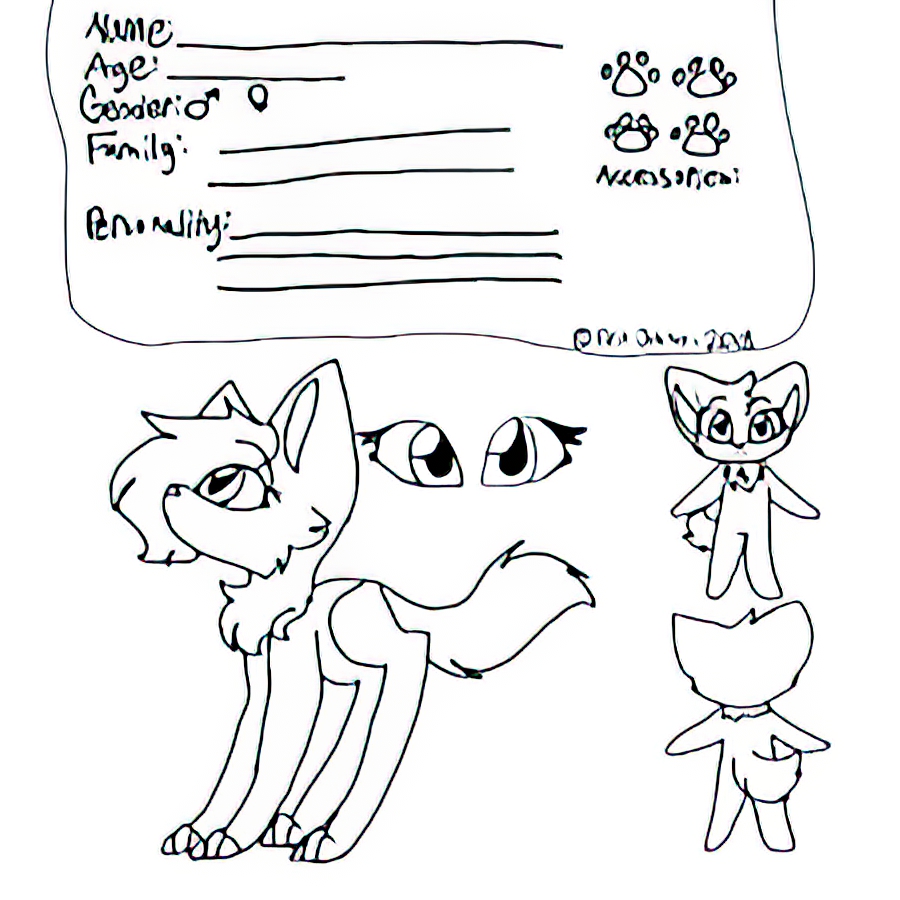 Name:
Age:
Gender: ♂ ♀
Family:
Personality:
Accessories: